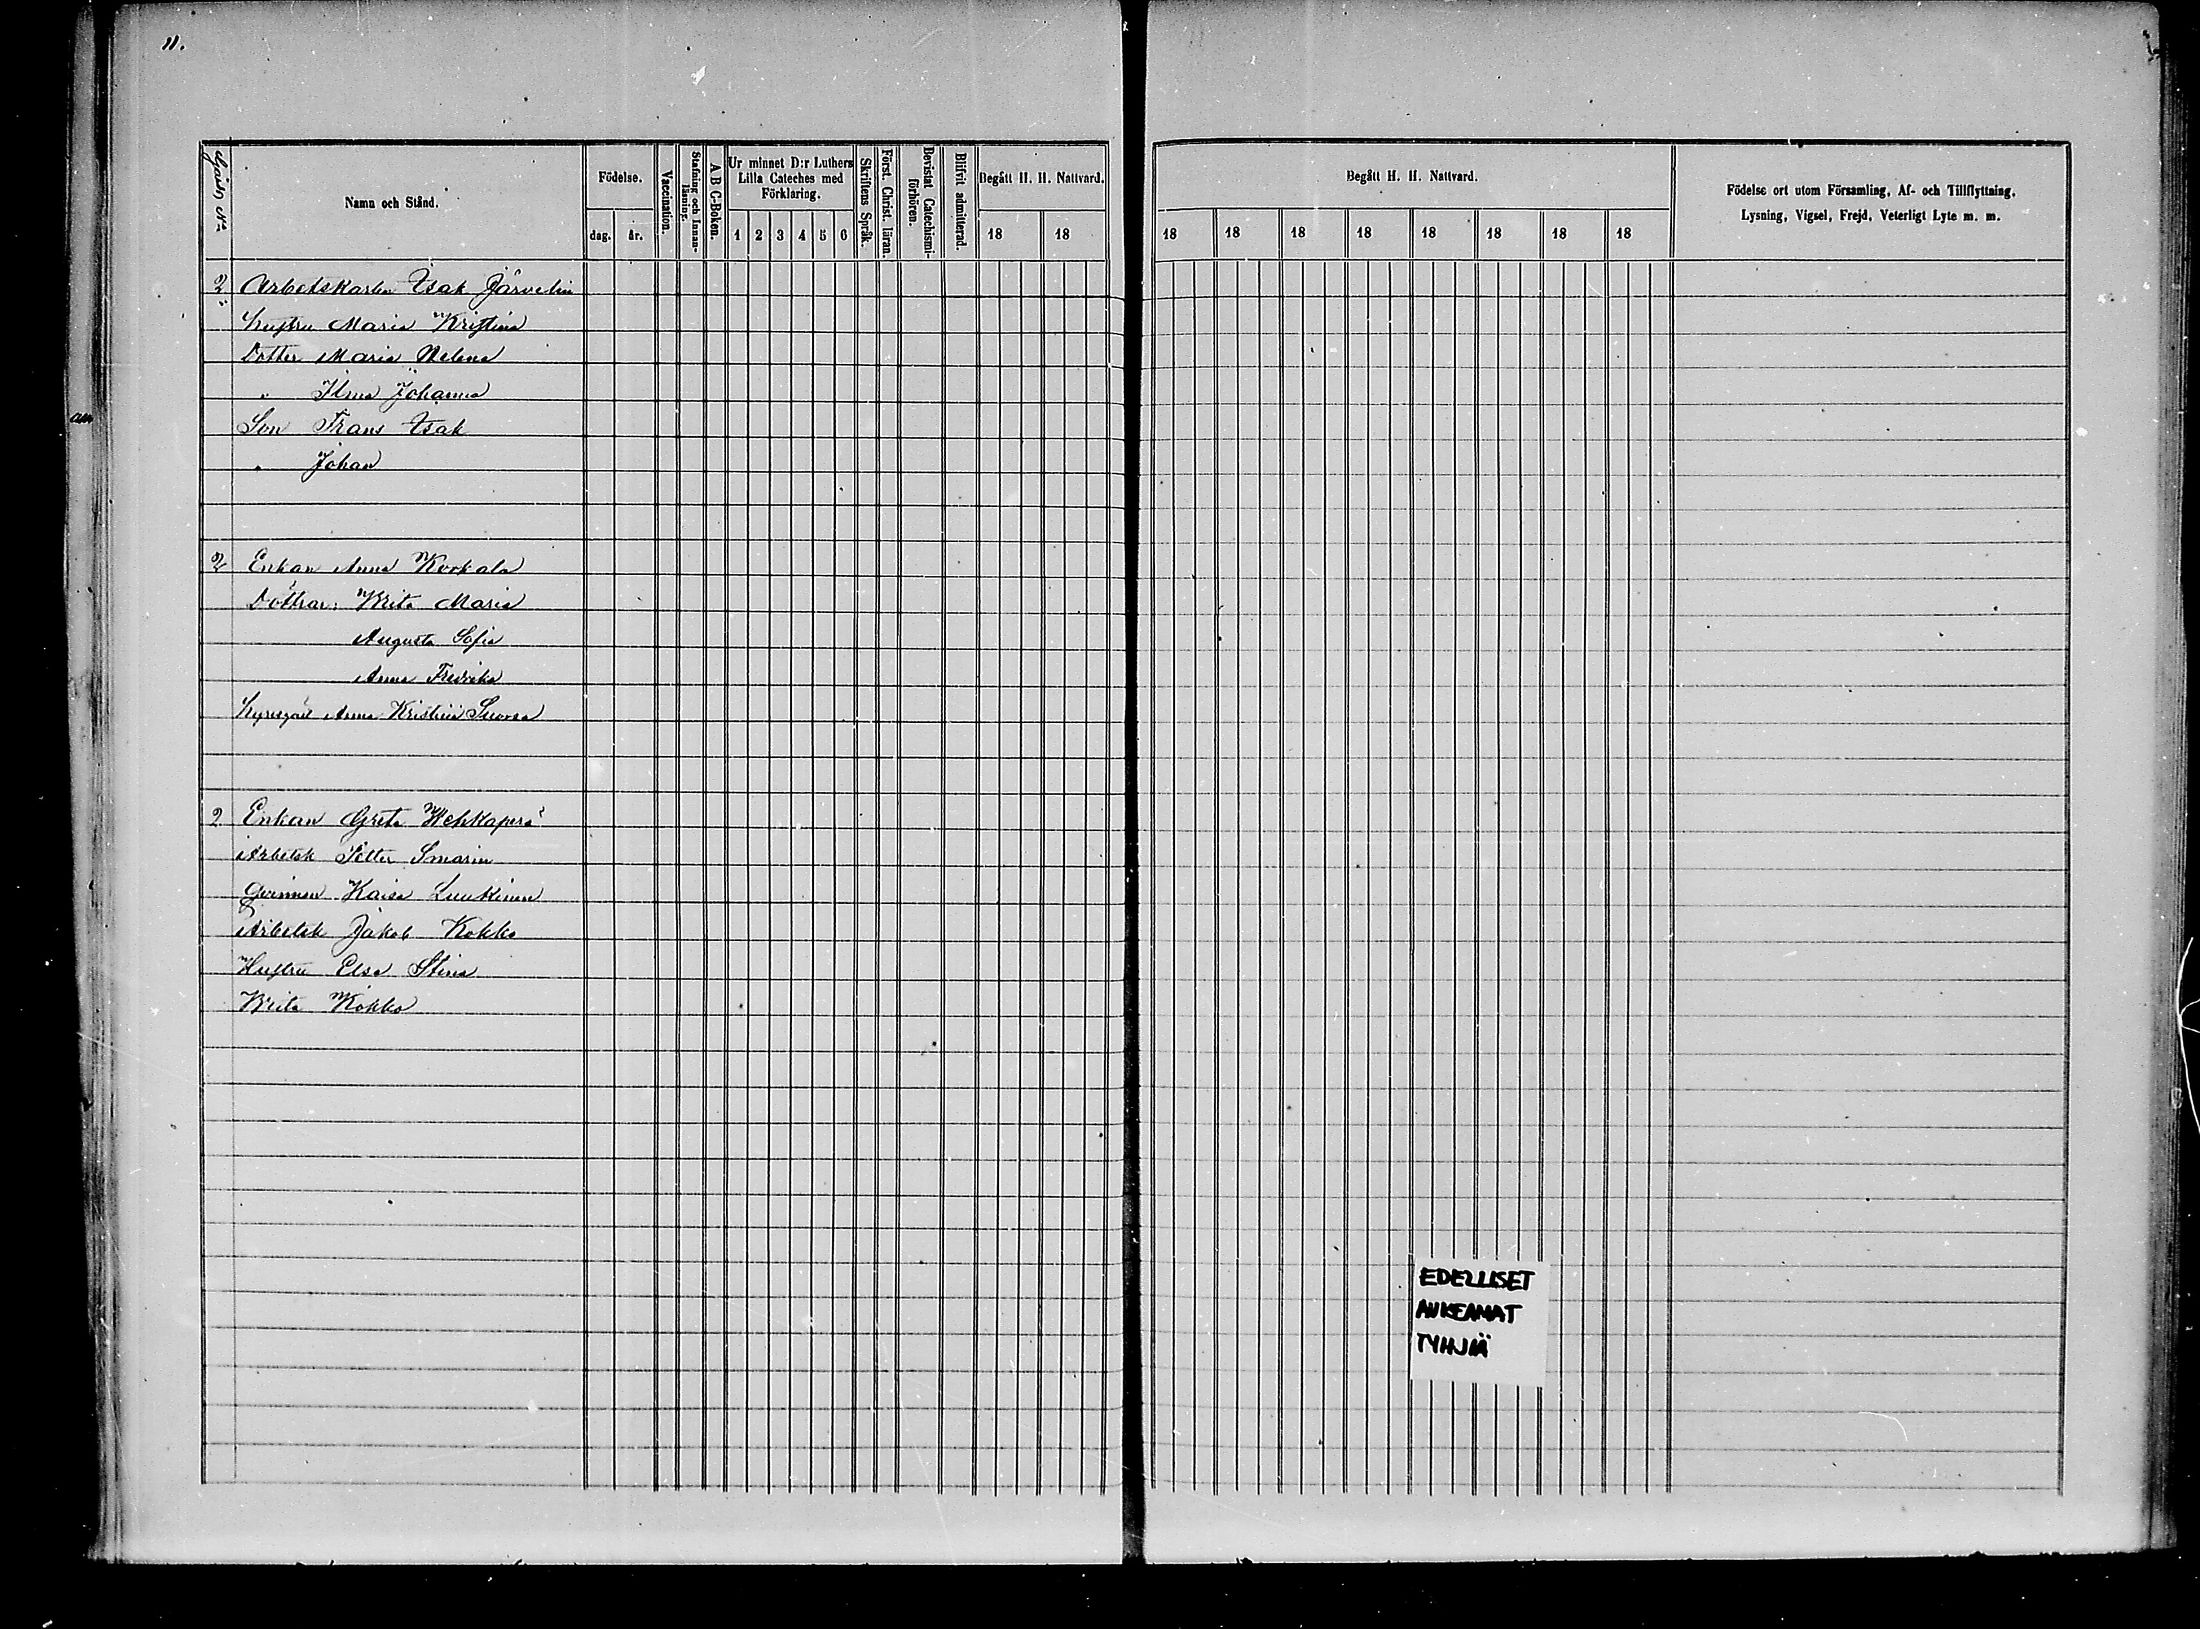 11.
Gårds No
Namn och Stånd.
Födelse.
dag. år.
Vaccination.
Stafning och Innanläsning.
A B C-Boken.
Ur minnet D:r Luthers
Lilla Cateches med
Förklaring.
1 2 3 4 5 6
Skriftens Språk.
Först. Christ. läran.
Bevistat Catechismiförhören.
Blifvit admitterad.
Begått H. H. Nattvard.
18 18
Begått H. H. Nattvard.
18 18 18 18 18 18 18 18
Födelse ort utom Församling, Af- och Tillflyttning,
Lysning, Vigsel, Frejd, Veterligt Lyte m. m.
2 Arbetskarlen Isak Järvelin
" Hustru Maria Kristina
Dotter Maria Helena
" Ilma Johanna
Son Frans Isak
" Johan
2 Enkan Anna Korkala
Döttrar: Brita Maria
Augusta Sofia
Anna Fredrika
Anna Kristina
2 Enkan Greta Wehkaperä
Arbetsk Petter Smarin
Qvinnan Kaisa Luukinen
Arbetsk Jakob Kokko
Hustru Elsa Stina
Brita Kokko
EDELLISET
AUKEAMAT
TYHJIÄ